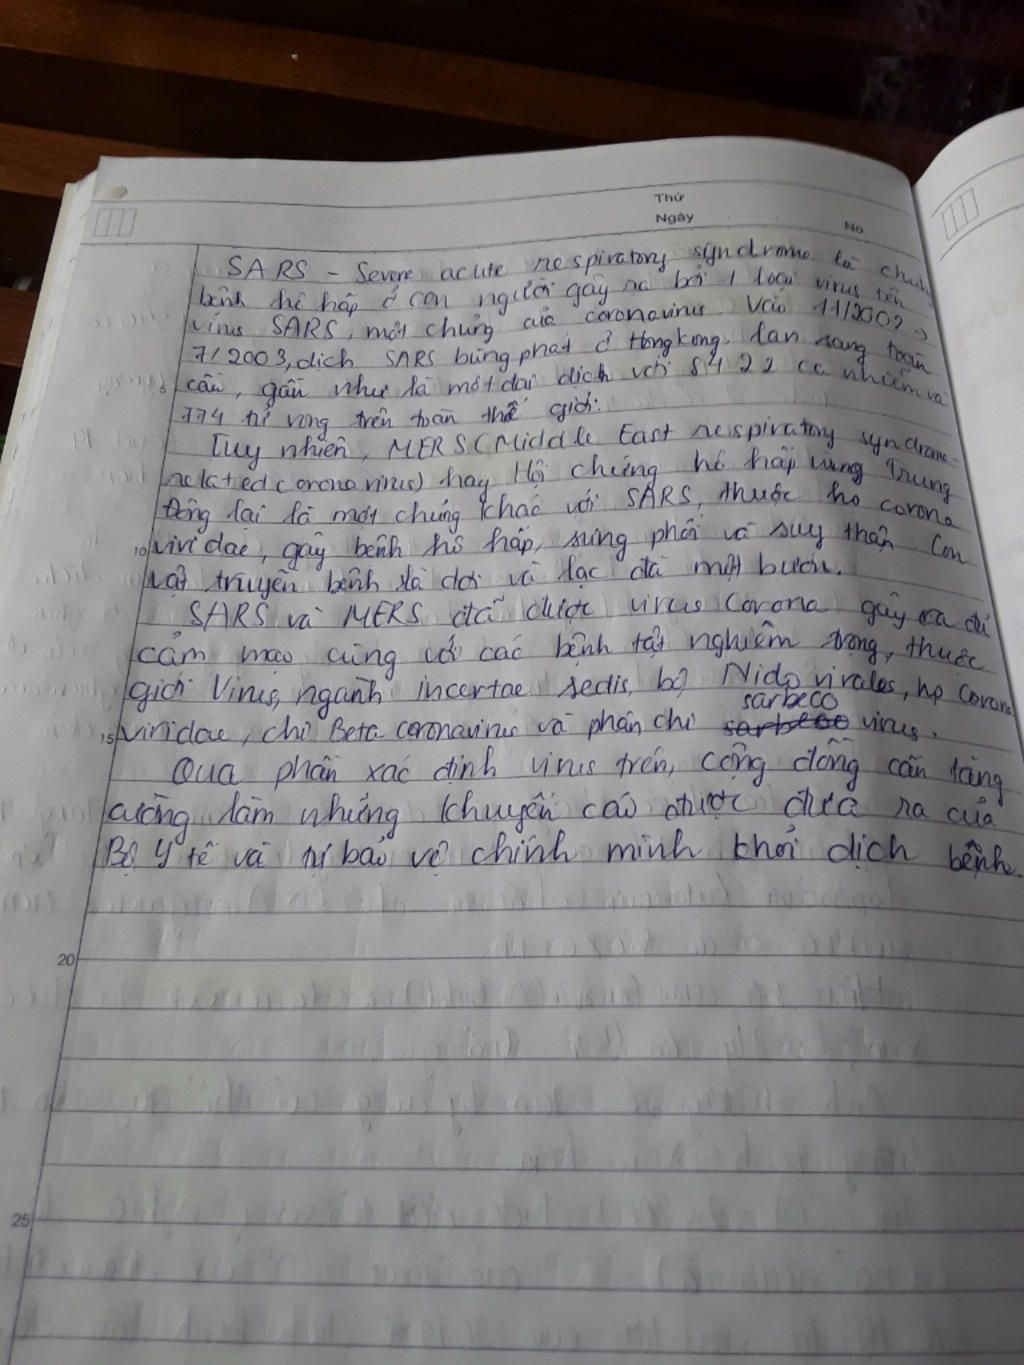 Thứ
Ngày
No
SARS - Severe acute respiratory syndrome là chứng
bệnh hô hấp ở con người gây ra bởi 1 loại virus tên
virus SARS, một chủng của coronavirus. Vào 11/2002 →
7/2003, dịch SARS bùng phát ở Hong Kong, lan sang toàn
5 cầu, gần như là một đại dịch với 8422 ca nhiễm và
774 tử vong trên toàn thế giới.
Tuy nhiên, MERS (Middle East respiratory syndrome-
related coronavirus) hay Hội chứng hô hấp vùng Trung
Đông lại là một chủng khác với SARS, thuộc họ corona
10 viridae, gây bệnh hô hấp, sưng phổi và suy thận. Con
vật truyền bệnh là dơi và lạc đà một bướu.
SARS và MERS đã được virus Corona gây ra từ
cảm mạo cùng với các bệnh tật nghiêm trọng, thuộc
giới Virus, ngành incertae sedis, bộ Nidovirales, họ Corona
sarbeco
15 viridae, chi Betacoronavirus và phân chi virus.
Qua phần xác định virus trên, cộng đồng cần tăng
cường làm những khuyến cáo được đưa ra của
Bộ Y tế và tự bảo vệ chính mình khỏi dịch bệnh.
20
25